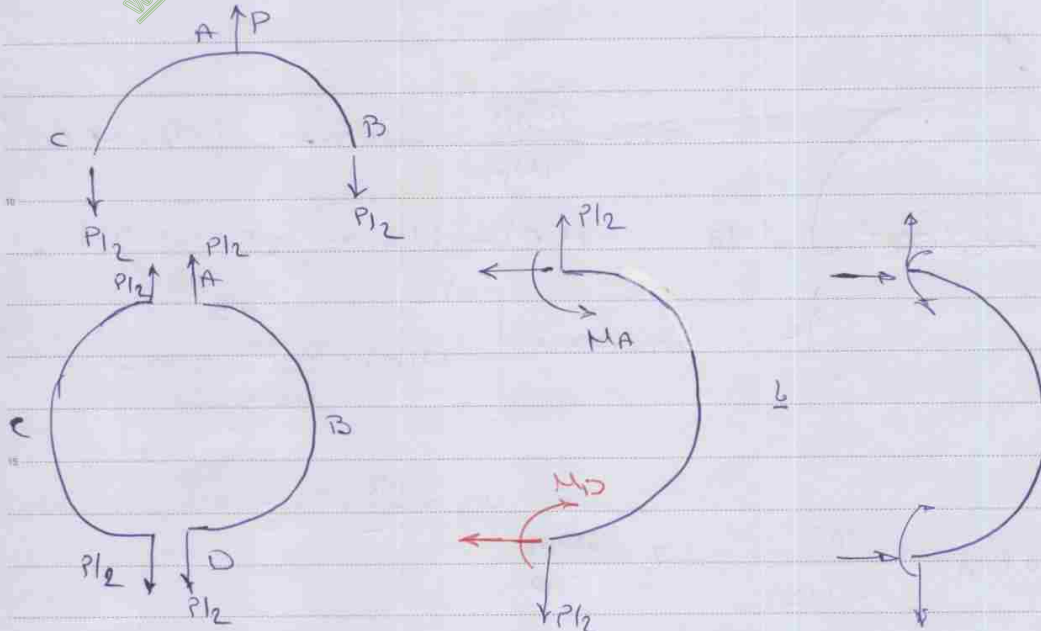 A P
C B
P/2 P/2
P/2 P/2
A
C B
P/2 D P/2
P/2
MA
MD
P/2
10
15